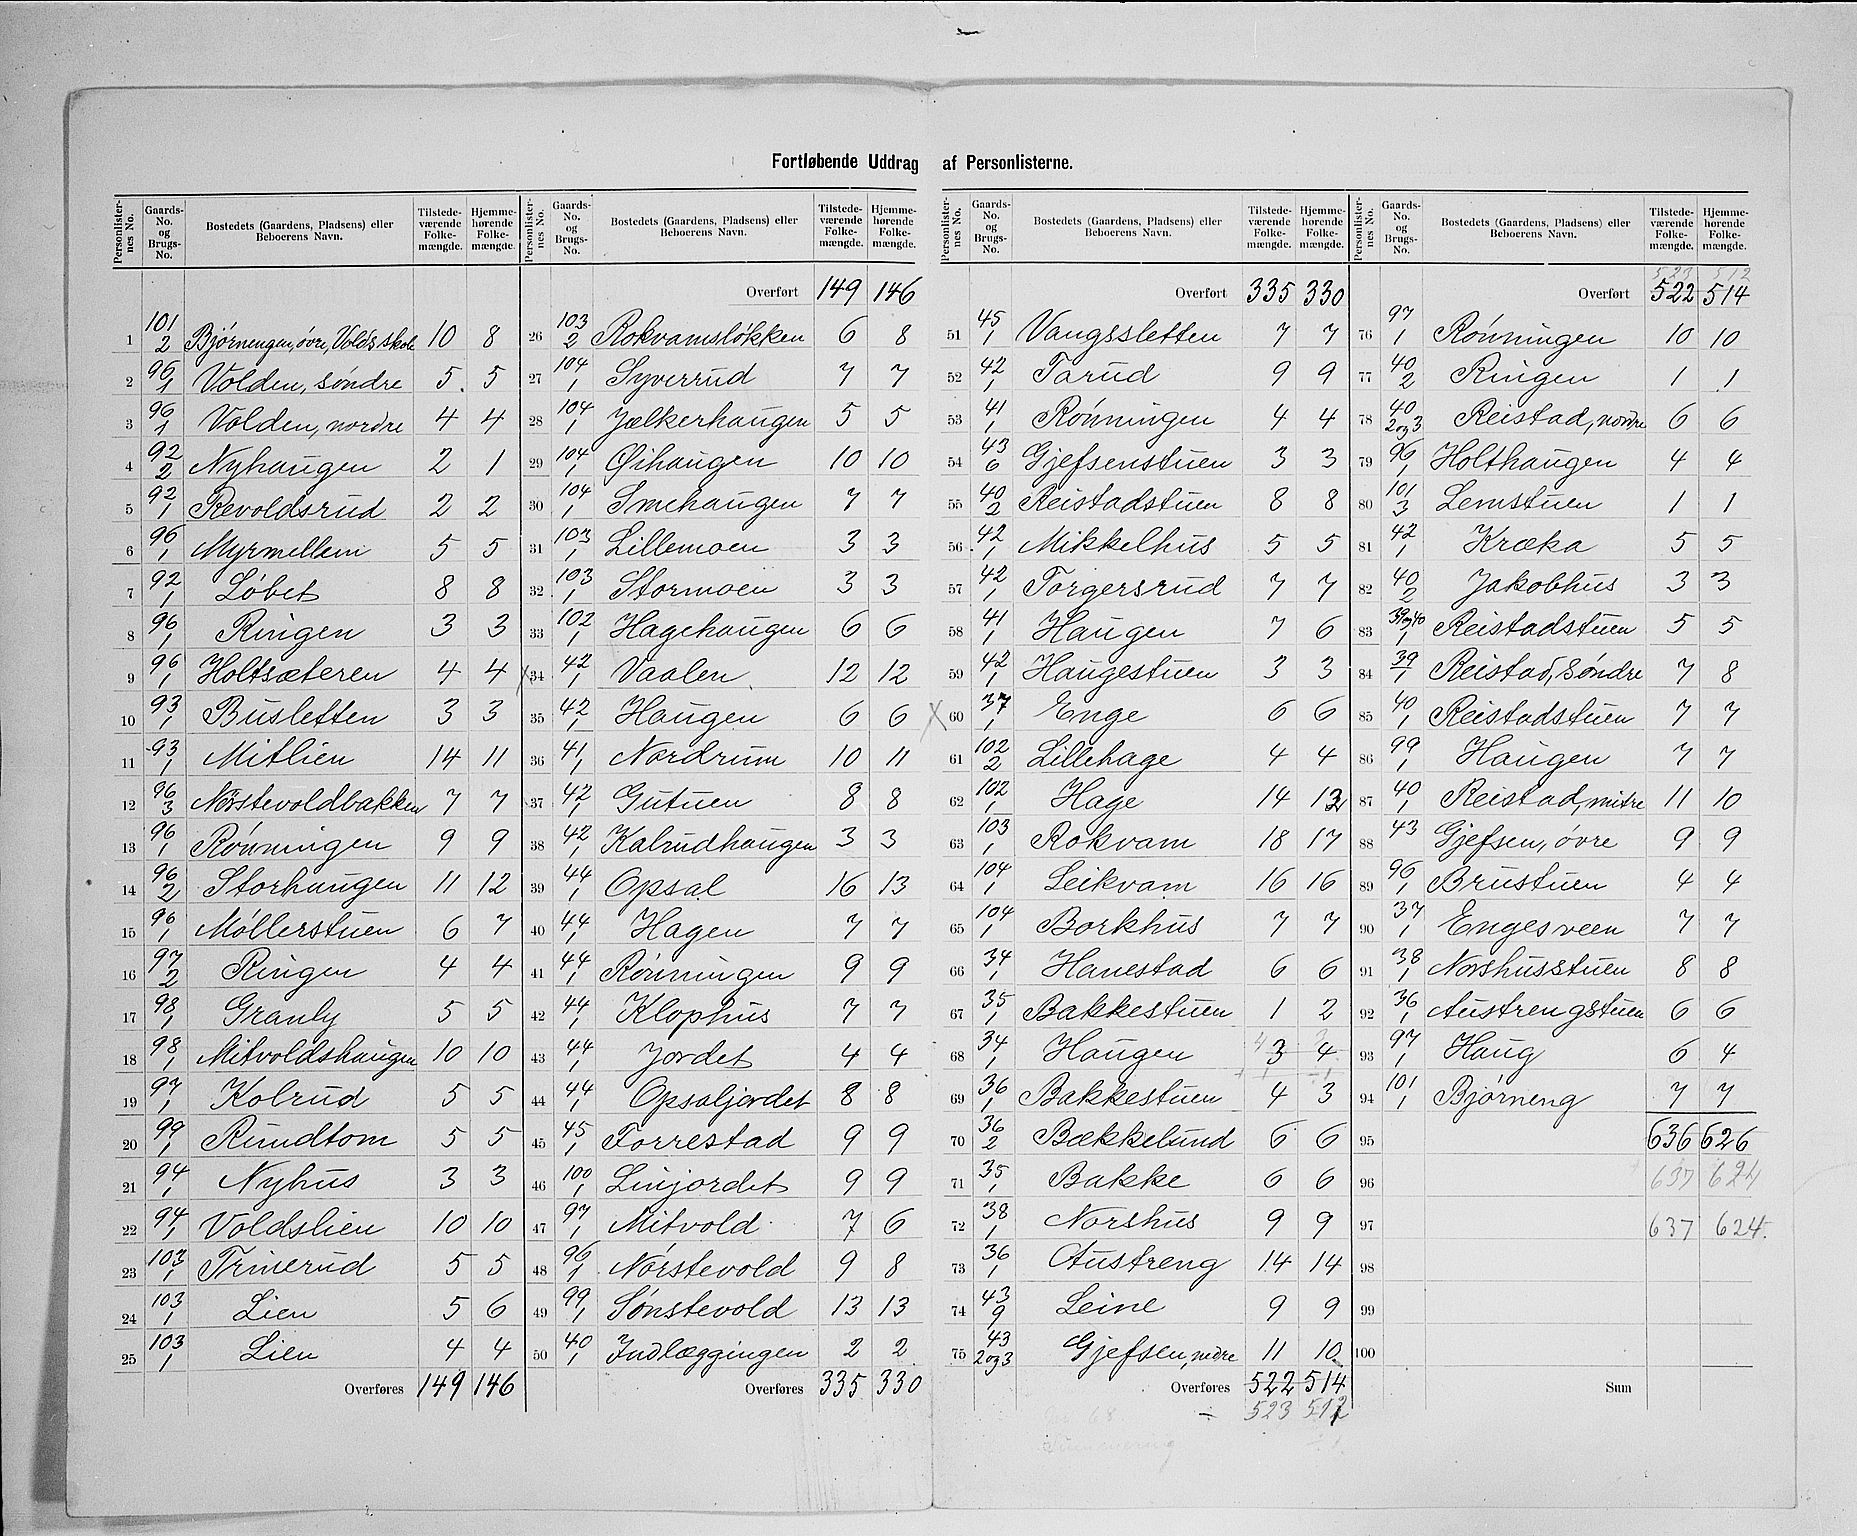 Fortløbende Uddrag af Personlisterne.
Personlisternes No. | Gaards-No. og Brugs-No. | Bostedets (Gaardens, Pladsens) eller Beboerens Navn. | Tilstedeværende Folkemængde. | Hjemmehørende Folkemængde.
1 101/2 Bjørnengen, øvre, Volds skole 10 8
2 96/1 Volden, søndre 5 5
3 96/1 Volden, nordre 4 4
4 92/2 Nyhaugen 2 1
5 92/1 Revoldsrud 2 2
6 96/1 Myrmellem 5 5
7 92/1 Løbet 8 8
8 96/1 Ringen 3 3
9 96/1 Holtsæteren 4 4
10 93/1 Busletten 3 3
11 93/1 Mitlien 14 11
12 96/3 Nørstevoldbakken 7 7
13 96/1 Rønningen 9 9
14 96/2 Storhaugen 11 12
15 96/1 Møllerstuen 6 7
16 97/2 Ringen 4 4
17 98/1 Granly 5 5
18 98/1 Mitvoldshaugen 10 10
19 97/1 Kolrud 5 5
20 99/1 Rundtom 5 5
21 94/1 Nyhus 3 3
22 94/1 Voldslien 10 10
23 103/1 Trinerud 5 5
24 103/1 Lien 5 6
25 103/1 Lien 4 4
Overføres 149 146
Personlisternes No. | Gaards-No. og Brugs-No. | Bostedets (Gaardens, Pladsens) eller Beboerens Navn. | Tilstedeværende Folkemængde. | Hjemmehørende Folkemængde.
Overført 149 146
26 103/2 Rokvamsløkken 6 8
27 104/1 Syverrud 7 7
28 104/1 Jælkerhaugen 5 5
29 104/1 Øihaugen 10 10
30 104/1 Smehaugen 7 7
31 103/1 Lillemoen 3 3
32 103/1 Stormoen 3 3
33 102/1 Hagehaugen 6 6
x 34 42/1 Vaalen 12 12
35 42/1 Haugen 6 6
36 41/1 Nordrum 10 11
37 42/1 Gutuen 8 8
38 42/1 Kalrudhaugen 3 3
39 44/1 Opsal 16 13
40 44/1 Hagen 7 7
41 44/1 Rønningen 9 9
42 44/1 Klophus 7 7
43 44/1 Jordet 4 4
44 44/1 Opsaljordet 8 8
45 45/1 Forrestad 9 9
46 100/1 Linjordet 9 9
47 97/1 Mitvold 7 6
48 96/1 Nørstevold 9 8
49 99/1 Sønstevold 13 13
50 40/1 Indlæggingen 2 2
Overføres 335 330
Personlisternes No. | Gaards-No. og Brugs-No. | Bostedets (Gaardens, Pladsens) eller Beboerens Navn. | Tilstedeværende Folkemængde. | Hjemmehørende Folkemængde.
Overført 335 330
51 45/1 Vangssletten 7 7
52 42/1 Tarud 9 9
53 41/1 Rønningen 4 4
54 43/6 Gjefsenstuen 3 3
55 40/2 Reistadstuen 8 8
56 42/1 Mikkelhus 5 5
57 42/1 Torgersrud 7 7
58 41/1 Haugen 7 6
59 42/1 Haugestuen 3 3
x 60 37/1 Enge 6 6
61 102/2 Lillehage 4 4
62 102/1 Hage 14 12
63 103/1 Rokvam 18 17
64 104/1 Leikvam 16 16
65 104/1 Borkhus 7 7
66 34/1 Hanestad 6 6
67 35/1 Bakkestuen 1 2
68 34/1 Haugen 3 4
69 36/1 Bakkestuen 4 3
70 36/2 Bækkelund 6 6
71 35/1 Bakke 6 6
72 38/1 Norshus 9 9
73 36/1 Austreng 14 14
74 43/9 Leine 9 9
75 43/2 og 3 Gjefsen, nedre 11 10
Overføres 522 514
523 512
68
Summering
Personlisternes No. | Gaards-No. og Brugs-No. | Bostedets (Gaardens, Pladsens) eller Beboerens Navn. | Tilstedeværende Folkemængde. | Hjemmehørende Folkemængde.
523 512
Overført 522 514
76 97/1 Rønningen 10 10
77 40/2 Ringen 1 1
78 40/2 og 3 Reistad, nordre 6 6
79 96/1 Holthaugen 4 4
80 101/3 Lemstuen 1 1
81 42/1 Kræka 5 5
82 40/2 Jakobhus 3 3
83 39 og 40/1 Reistadstuen 5 5
84 39/1 Reistad, søndre 7 8
85 40/1 Reistadstuen 7 7
86 99/1 Haugen 7 7
87 40/1 Reistad, mitre 11 10
88 43 Gjefsen, øvre 9 9
89 96/1 Brustuen 4 4
90 37/1 Engesveen 7 7
91 38/1 Norshusstuen 8 8
92 36/1 Austrengstuen 6 6
93 97/1 Haug 6 4
94 101/1 Bjørneng 7 7
95 636 626
96 637 624
97 637 624.
98
99
100
Sum